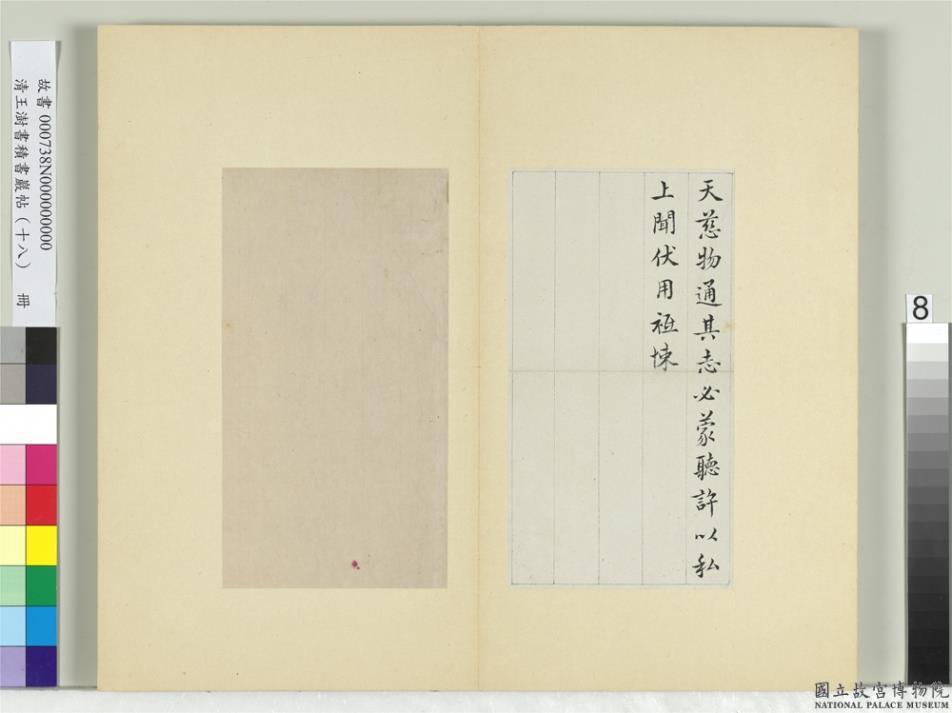 天慈物通其志必蒙聽許以私
上聞伏用祗悚
故書 000738N000000000
清王澍書積書巖帖（十八） 冊
8
國立故宮博物院
NATIONAL PALACE MUSEUM